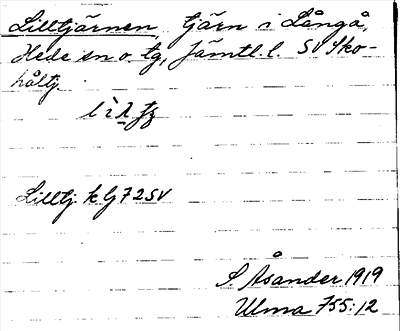 Lilltjärnen, tjärn i Långå,
Hede sn o. tg, Jämtl. l. SV Sko-
håltj.
Lilltj. k lj 72 SV
S. Åsander 1919
Ulma 755:12